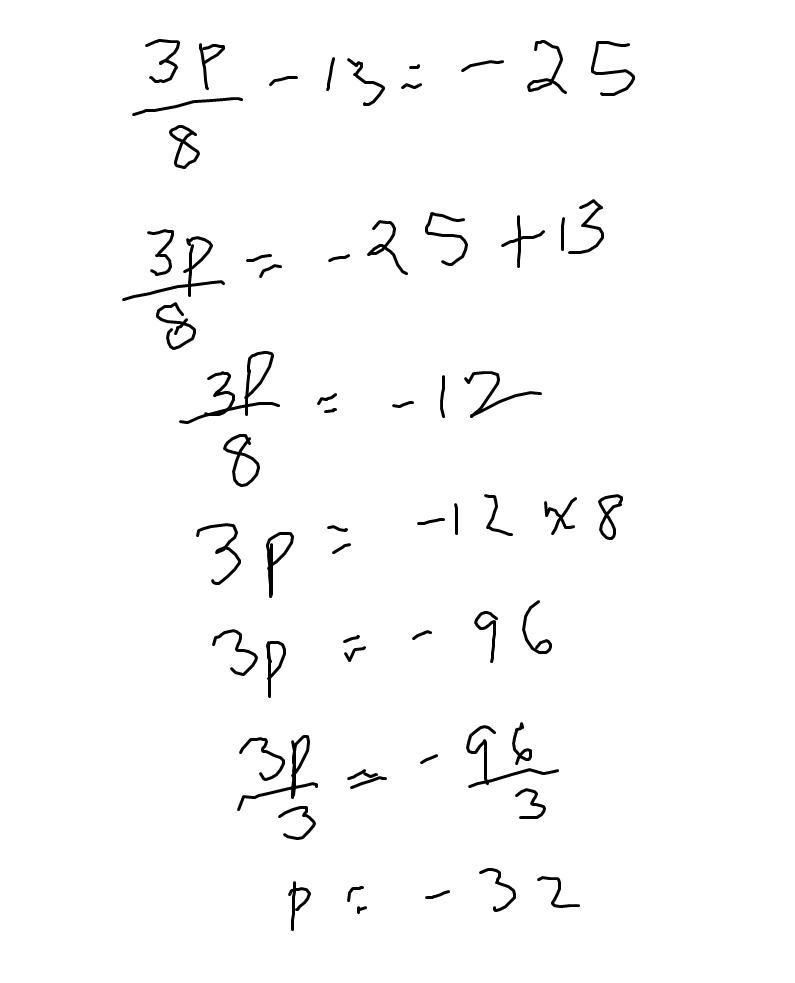 3p/8 - 13 = -25
3p/8 = -25 + 13
3p/8 = -12
3p = -12 × 8
3p = -96
3p/3 = -96/3
p = -32